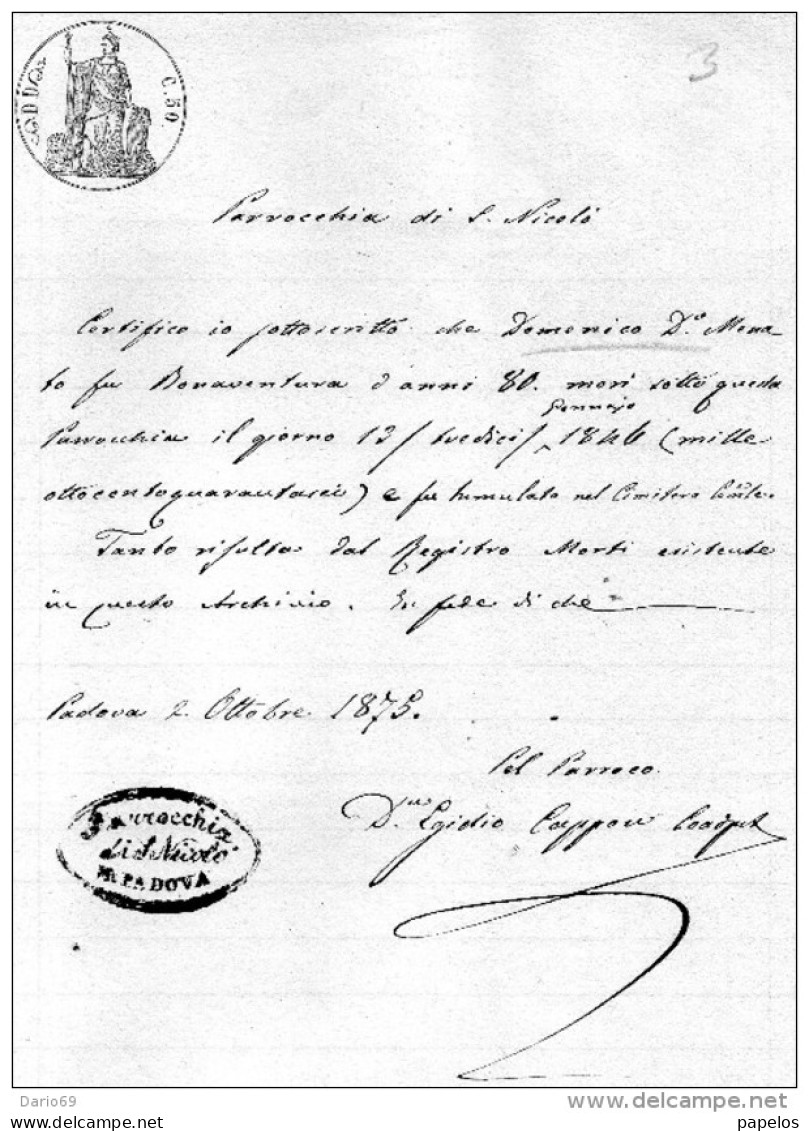 C. 50
3
Parrocchia di S. Nicolò
Certifico io sottoscritto che Domenico D.r Mena
to fu Bonaventura d'anni 80. morì sotto questa
Gennajo
Parrocchia il giorno 13 / tredici / 1846 (mille
ottocentoquarantasei) e fu tumulato nel Cimitero
Tanto risulta dal Registro Morti esistente
in questo Archivio. In fede di che
Padova 2. Ottobre 1875.
Pel Parroco
D. Egidio Cappon
Parrocchia
di S. Nicolò
IN PADOVA
Dario69
delcampe.net
papelos